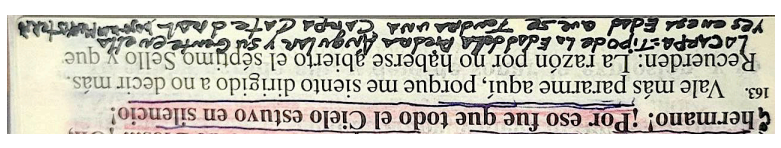 ¡hermano! ¡Por eso fue que todo el Cielo estuvo en silencio!
163. Vale más pararme aquí, porque me siento dirigido a no decir más.
Recuerden: La razón por no haberse abierto el séptimo Sello y que
LA CARPA=TIPO DE LA EDAD DE LA PIEDRA ANGULAR Y SU GENTE EN ELLA
Y ES EN ESA EDAD QUE SE TENDRA UNA CARPA CATEDRAL